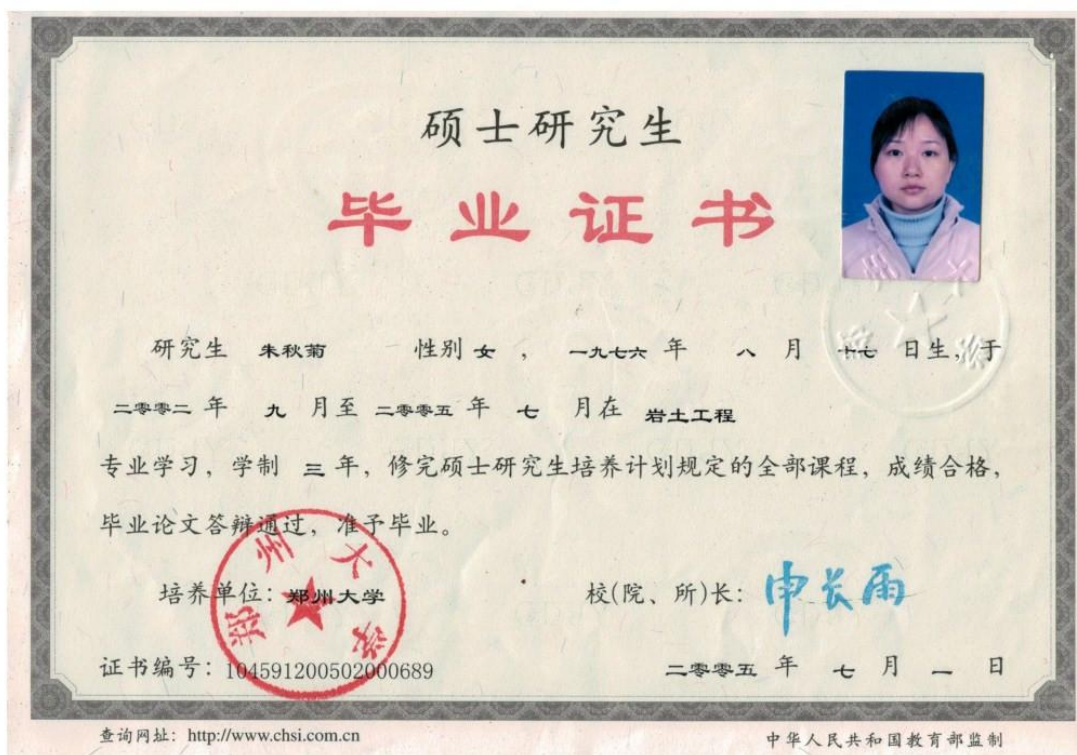 硕士研究生
毕业证书
研究生 朱秋菊 性别 女 ， 一九七六 年 八 月 十七 日生，于
二零零二 年 九 月至 二零零五 年 七 月在 岩土工程
专业学习，学制 三 年，修完硕士研究生培养计划规定的全部课程，成绩合格，
毕业论文答辩通过，准予毕业。
培养单位：郑州大学
校(院、所)长：申长雨
郑州大学
证书编号：104591200502000689
二零零五 年 七 月 一 日
查询网址：http://www.chsi.com.cn
中华人民共和国教育部监制